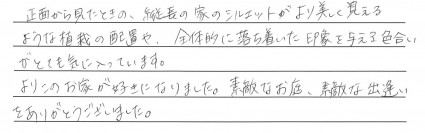 正面から見たときの、縦長の家のシルエットがより美しく見える
ような植栽の配置や、全体的に落ち着いた印象を与える色合い
がとても気に入っています。
よりこのお家が好きになりました。素敵なお庭、素敵な出逢い
をありがとうございました。